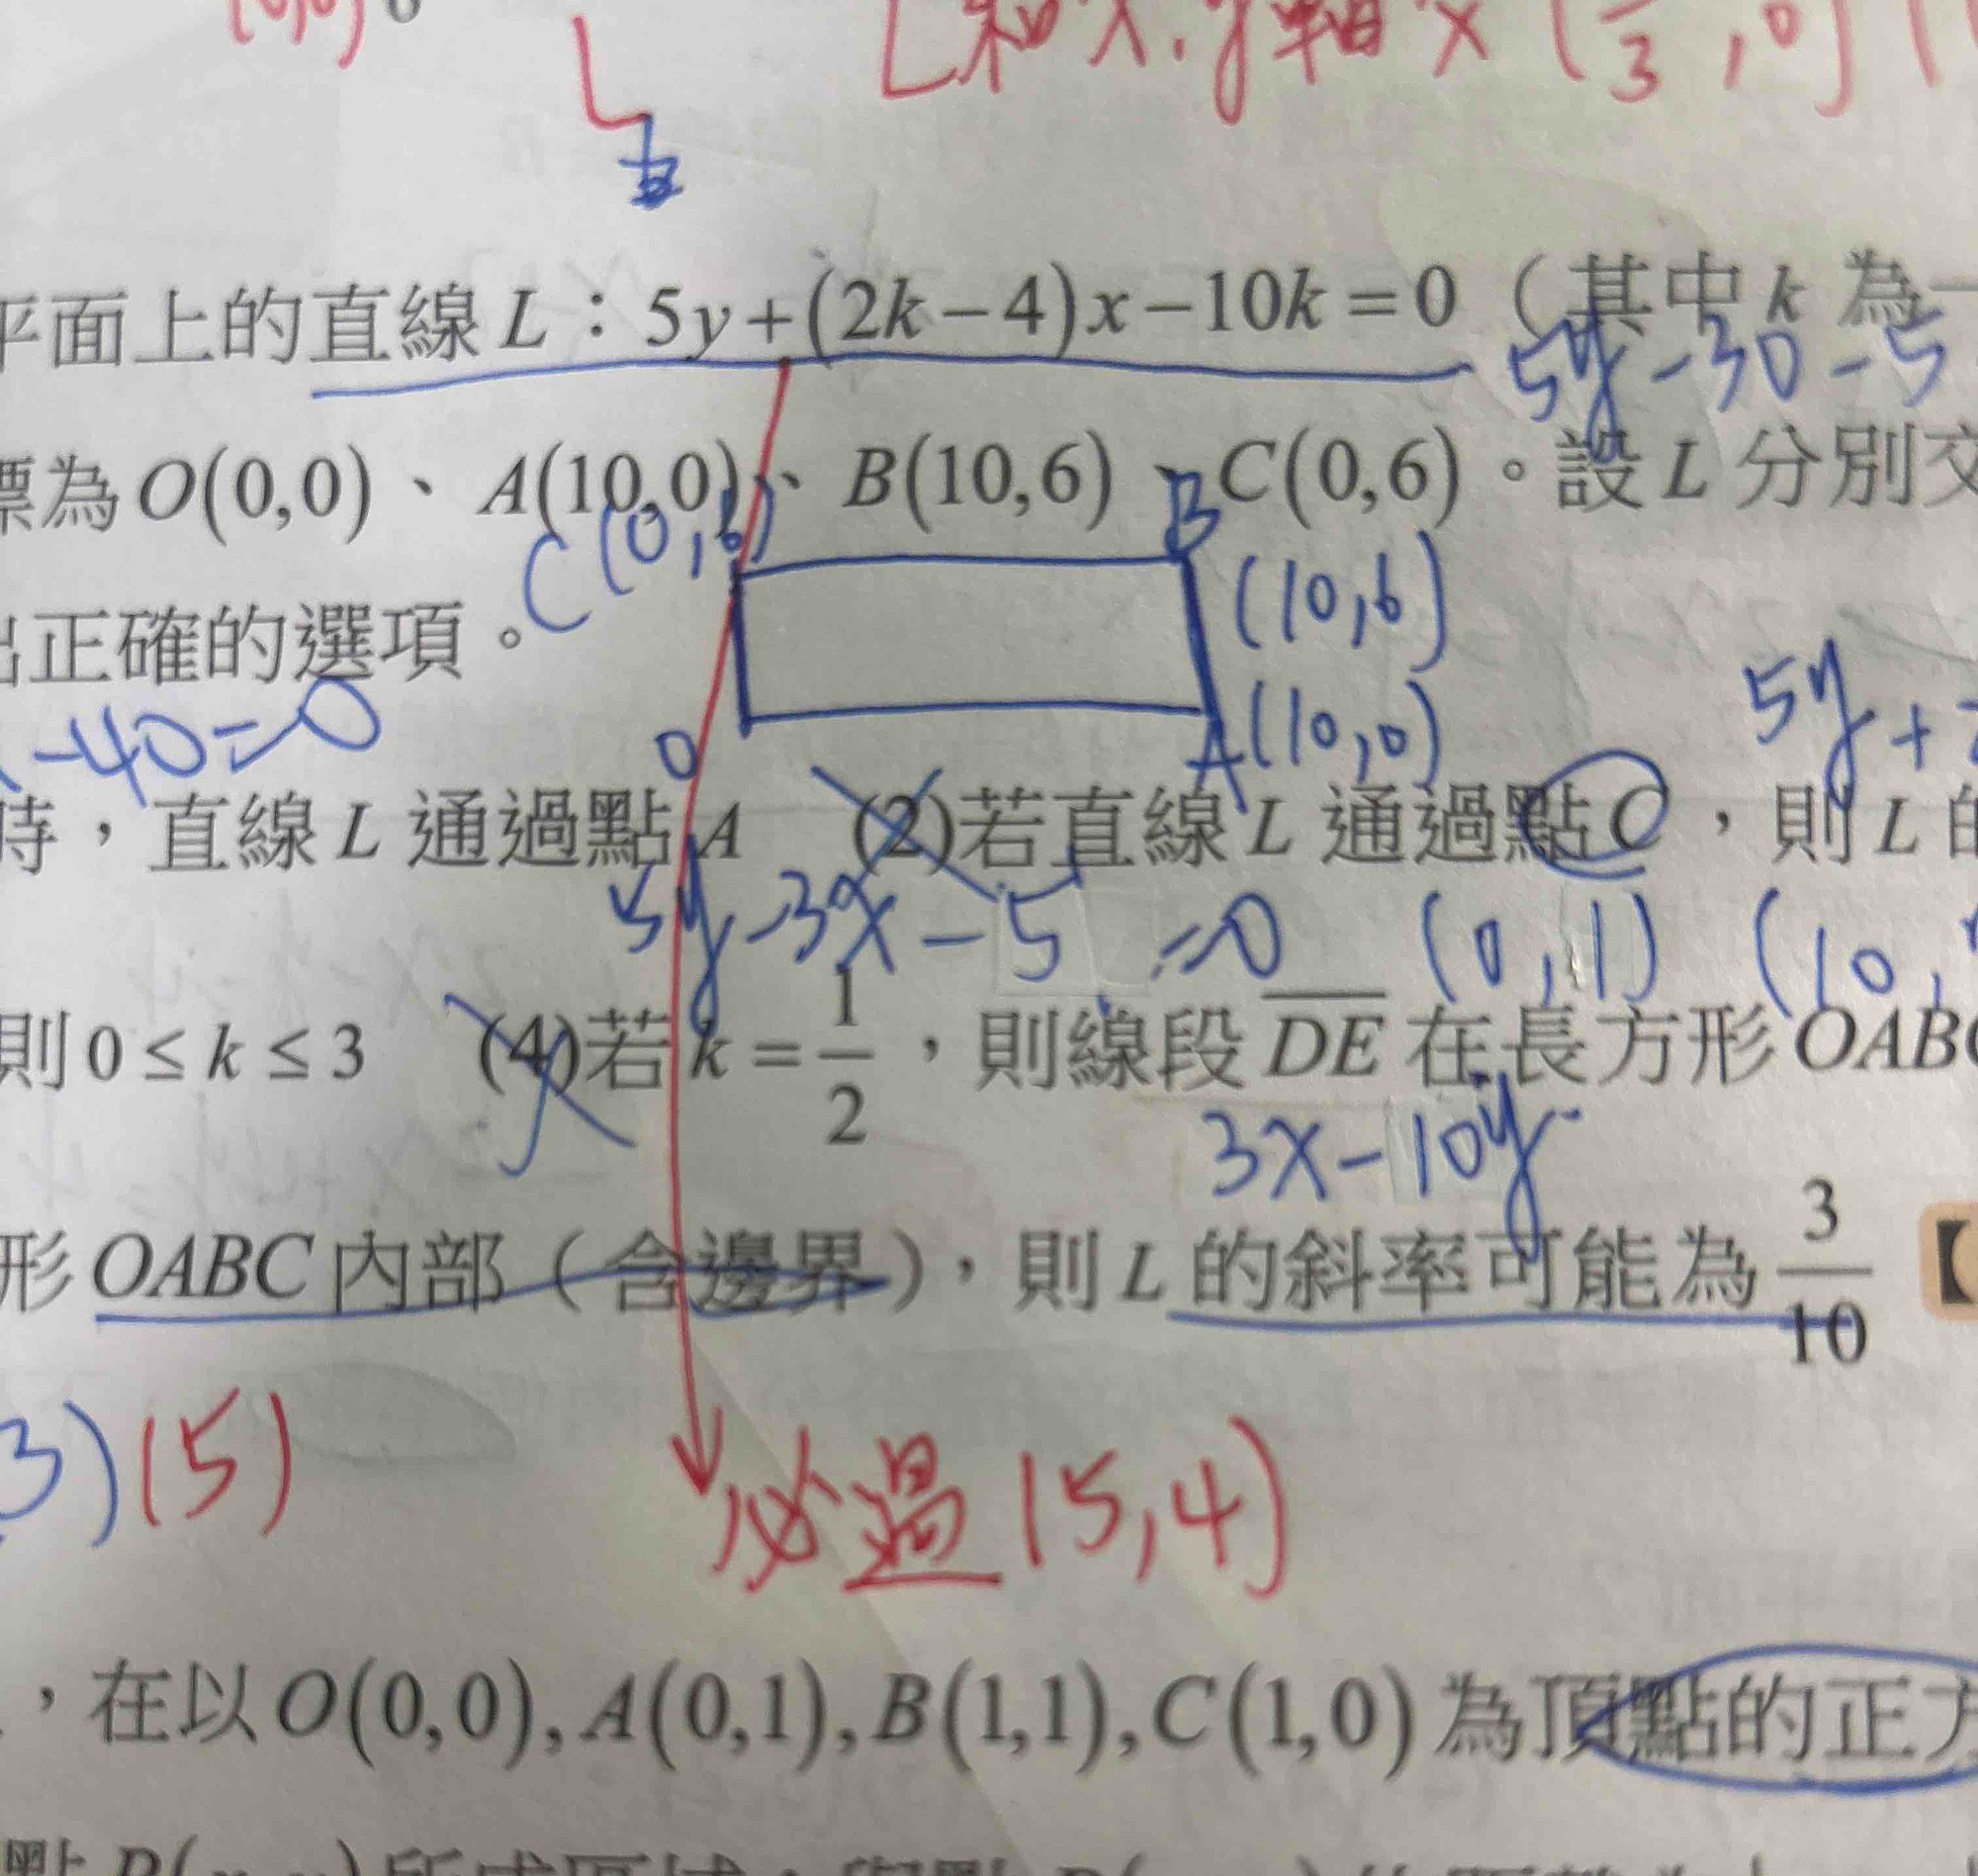 (0,0) 0
L和x.y軸交(/3,0)
平面上的直線 L：5y+(2k−4)x−10k=0（其中 k 為一
5y−30−5
標為 O(0,0)、A(10,0)、B(10,6)、C(0,6)。設 L 分別交
C(0,6) B
(10,6)
出正確的選項。
−40=0 0 A(10,0) 5y+
時，直線 L 通過點 A (2)若直線 L 通過點 C，則 L 的
5y−3x−5=0 (0,1) (10,
則 0≤k≤3 (4)若 k=1/2，則線段 DE 在長方形 OABC
3x−10y
形 OABC 內部（含邊界），則 L 的斜率可能為 3/10【
3)(5)
必過(5,4)
，在以 O(0,0),A(0,1),B(1,1),C(1,0) 為頂點的正方